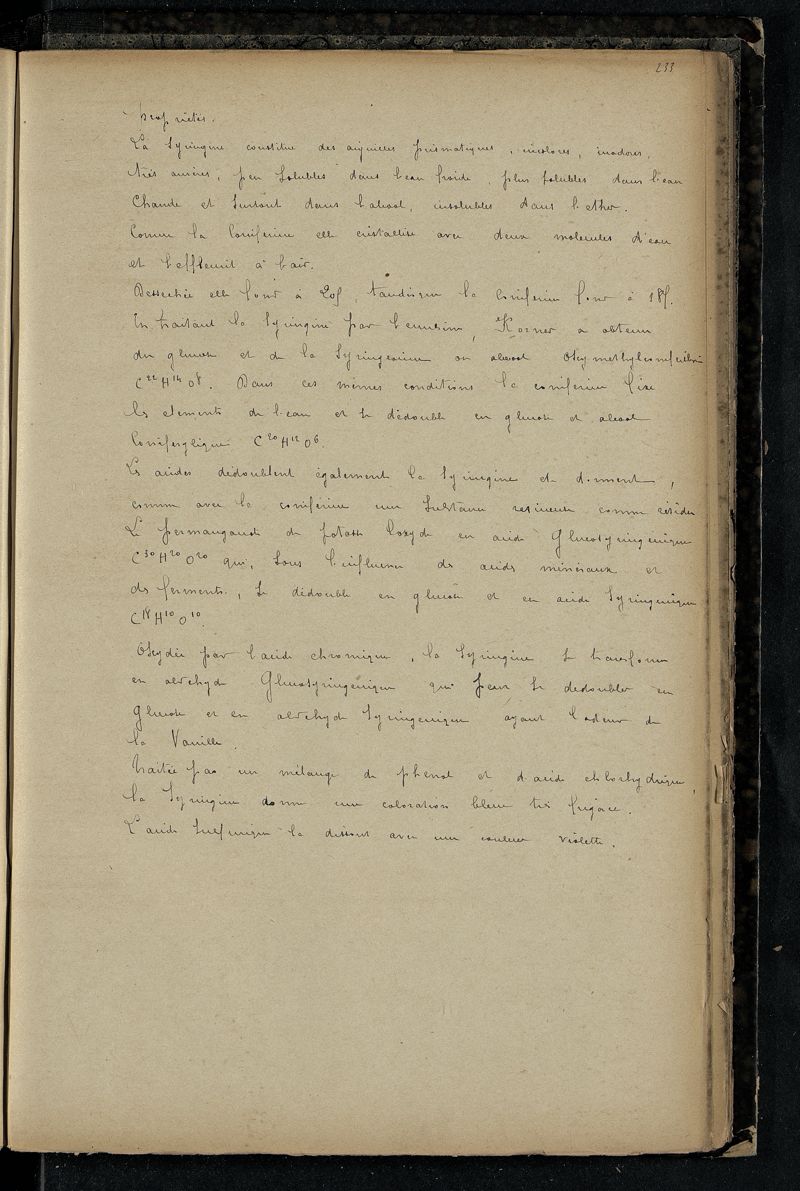 233
Propriétés.
La Syringine constitue des aiguilles prismatiques, incolores, inodores,
très amères, peu solubles dans l'eau froide, plus solubles dans l'eau
chaude et surtout dans l'alcool, insolubles dans l'ether.
Comme la Coniferine elle cristallise avec deux molecules d'eau
et s'effleurit à l'air.
Dessechée elle fond à 205, tandisque la coniferine fond à 185.
En traitant la Syringine par l'emulsine, Körner a obtenu
du glucose et de la Syringenine ou alcool Oxymethylconiferilique
C²²H¹⁴O⁸. Dans ces mêmes conditions la coniferine fixe
les elements de l'eau et se dédouble en glucose et alcool
Coniferylique C²⁰H¹²O⁶.
Les acides dédoublent également la Syringine et donnent,
comme avec la coniferine une substance resineuse comme résidu
Le permanganate de potasse l'oxyde en acide glucosyringenique
C³⁰H²⁰O²⁰ qui, sous l'influence des acides minéraux et
des ferments, se dédouble en glucose et en acide Syringenique
C¹⁸H¹⁰O¹⁰.
Oxydée par l'acide chromique, la Syringine se transforme
en aldehyde Glucosyringenique qui peut se dedoubler en
Glucose et en aldehyde Syringenique ayant l'odeur de
la Vanille.
Traitée par un mélange de phenol et d'acide chlorhydrique,
la Syringine donne une coloration bleue très fugace.
L'acide Sulfurique la dissout avec une couleur violette.